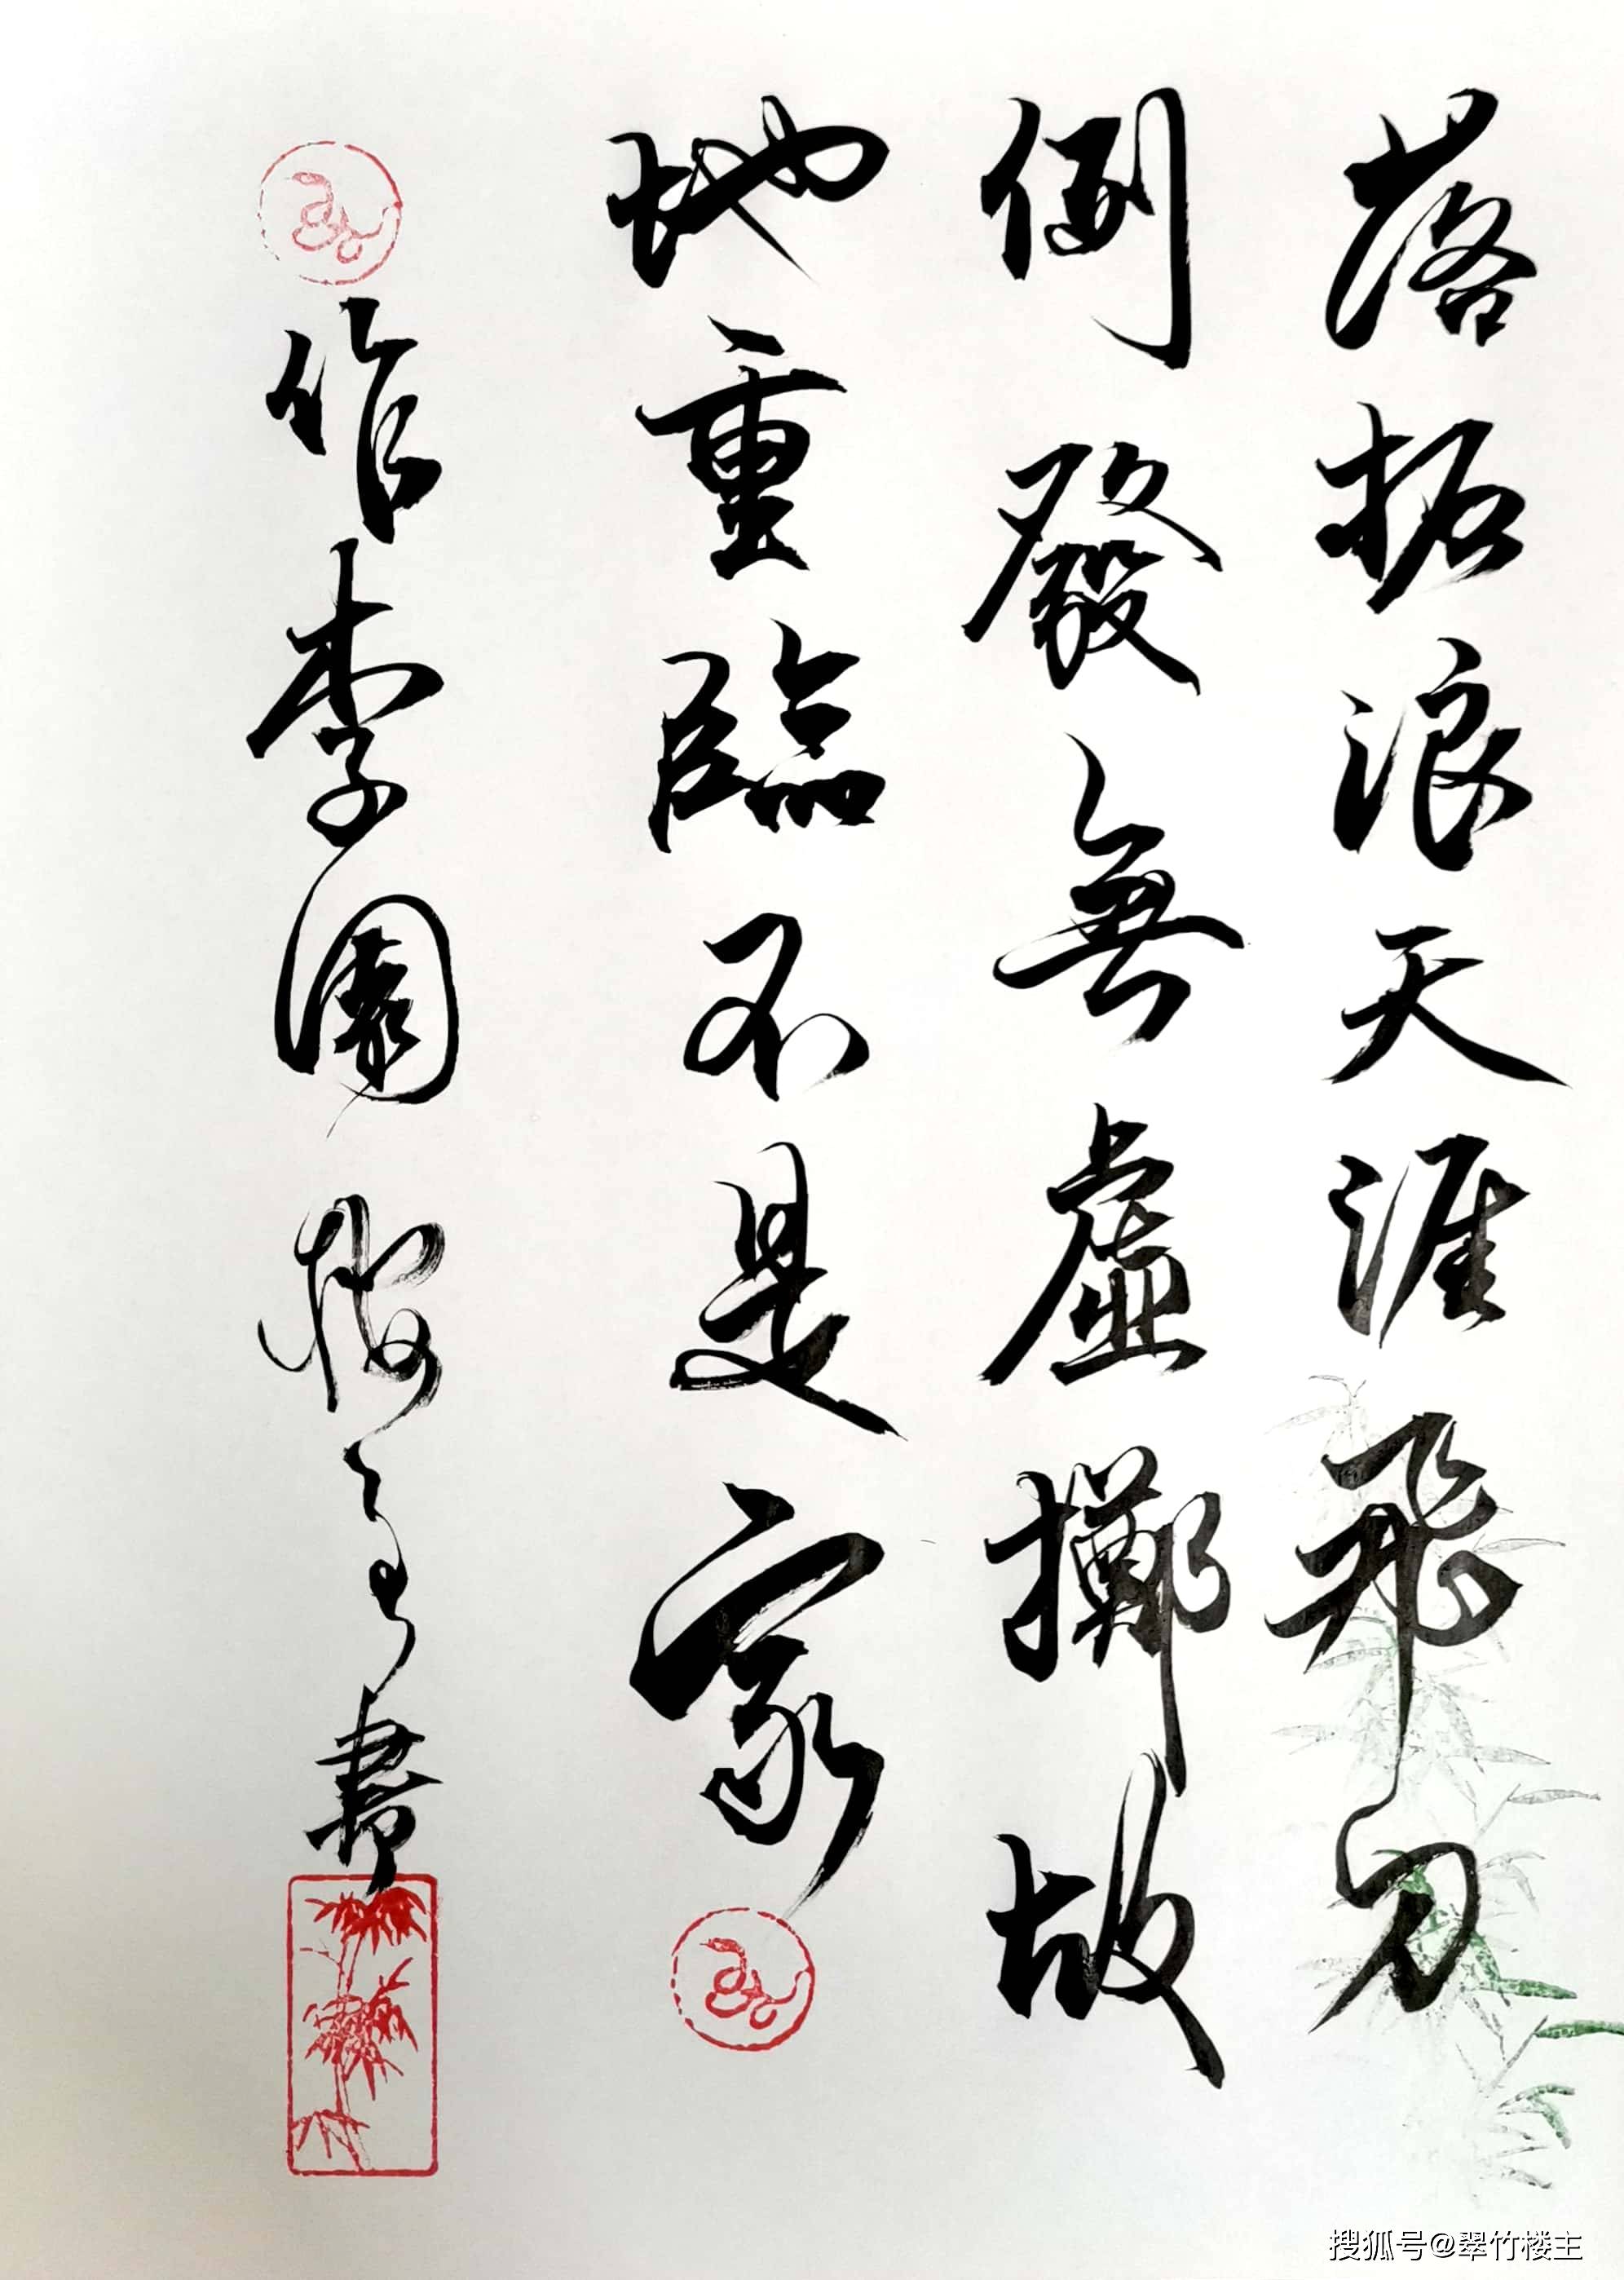 落拓浪天涯飛刀
例發無虛擲故
地重臨不是家
作李園楼主書
搜狐号@翠竹楼主